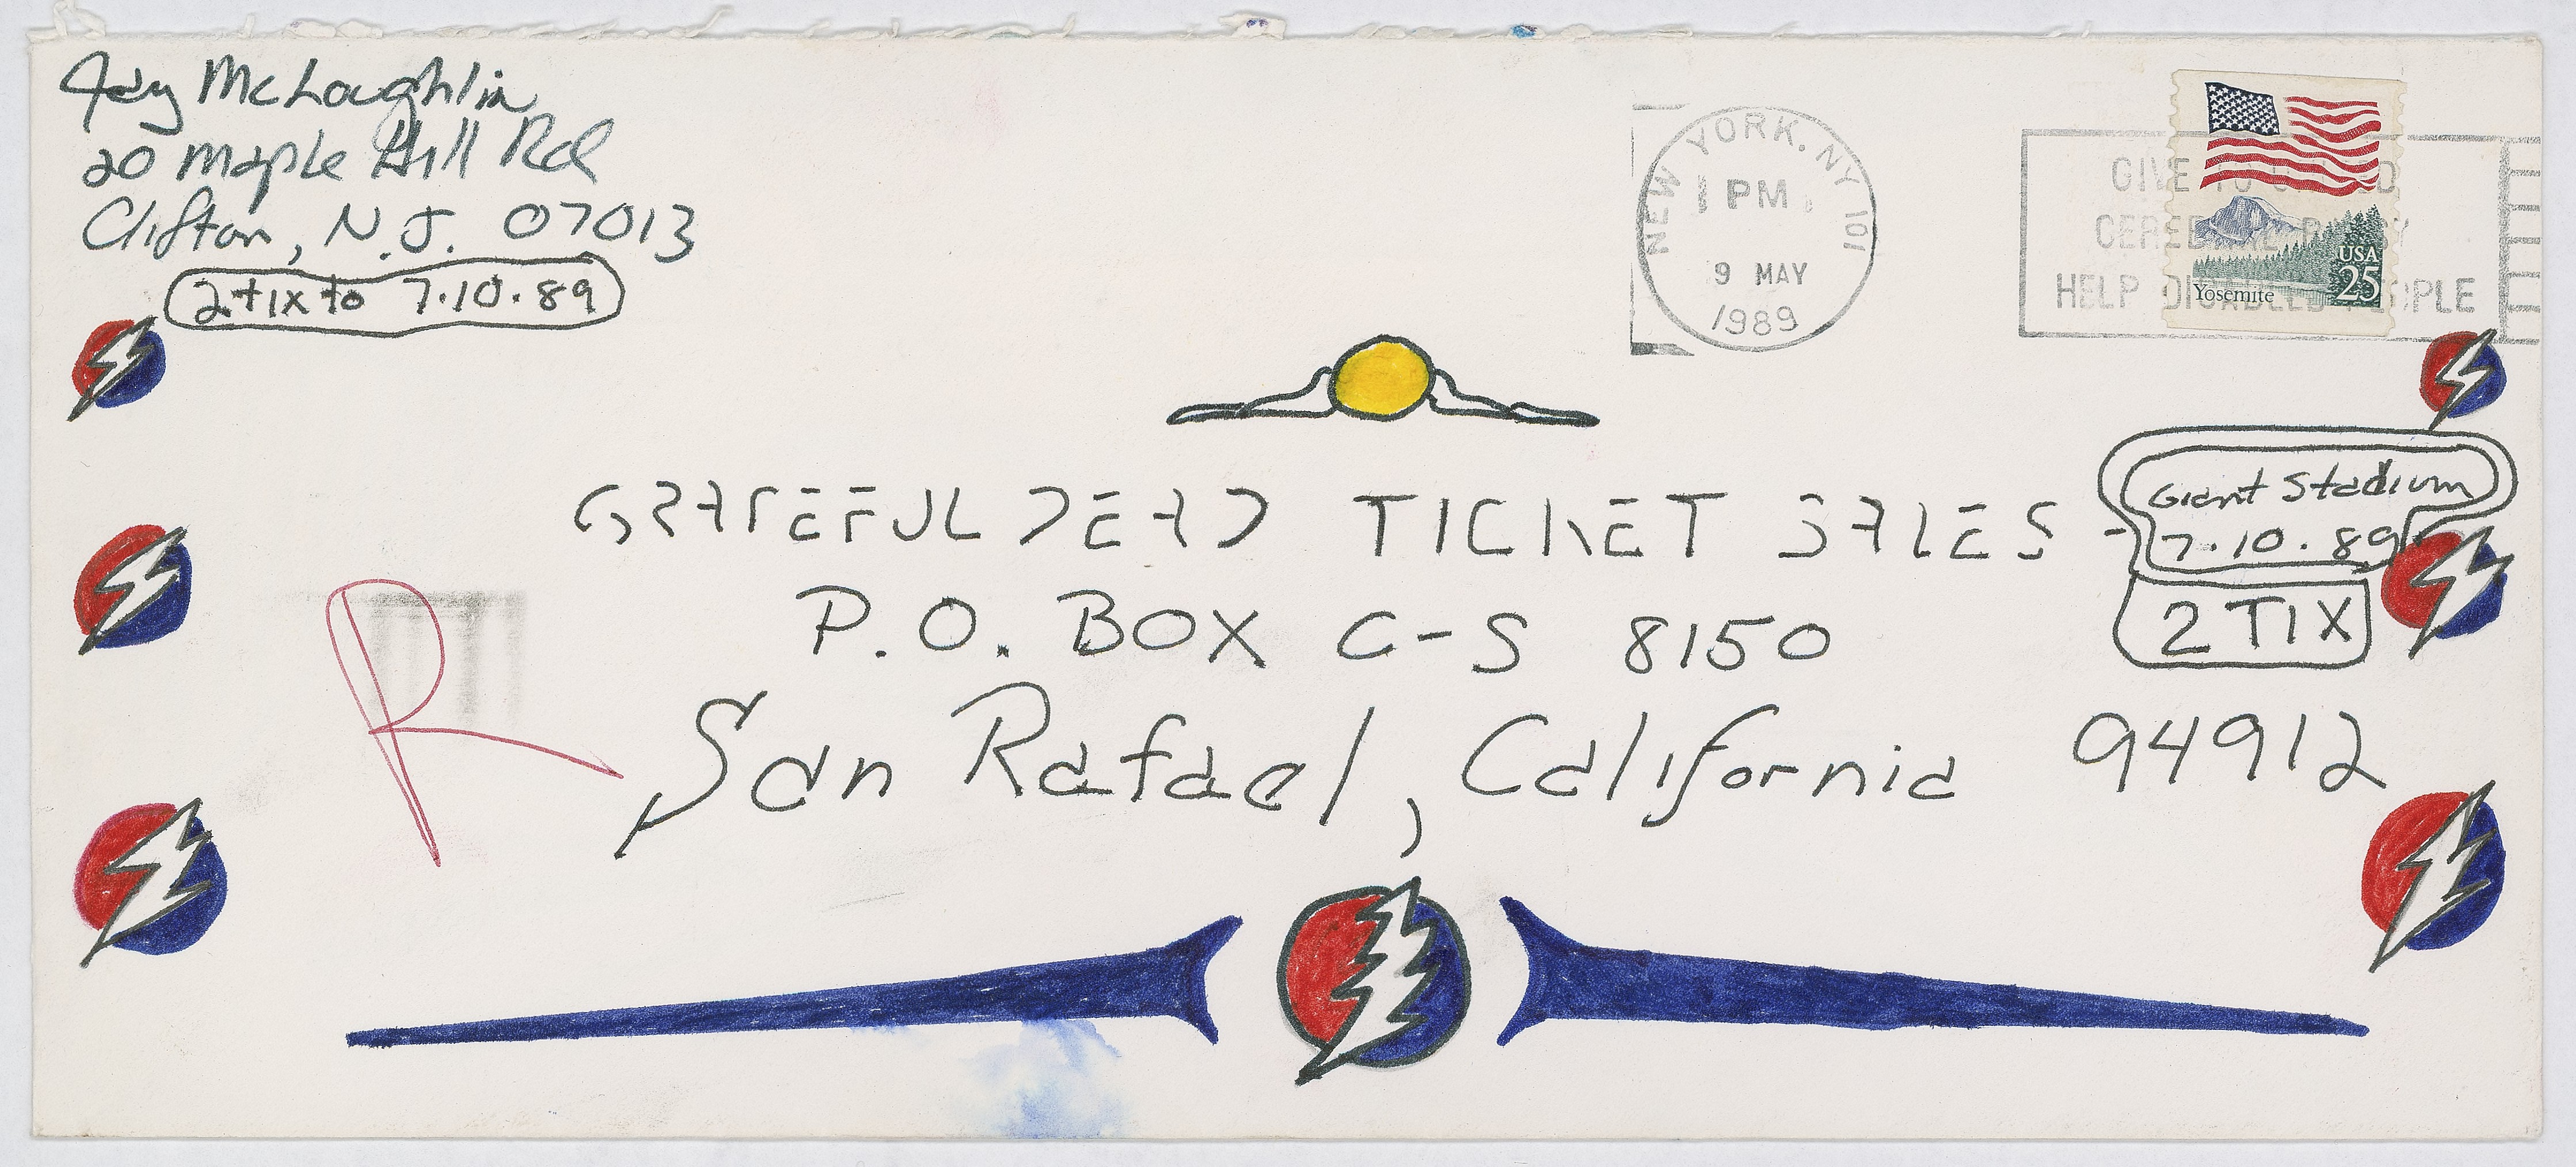 Jay McLoughlin
20 Maple Hill Rd
Clifton, N.J. 07013
2 tix to 7.10.89
NEW YORK, NY 101
1 PM
9 MAY
1989
GIVE TO UNITED
CEREBRAL PALSY
HELP DISABLED PEOPLE
USA
25
Yosemite
GRATEFUL DEAD TICKET SALES -
Giant Stadium
7.10.89
2 TIX
P.O. BOX C-S 8150
San Rafael, California 94912
R